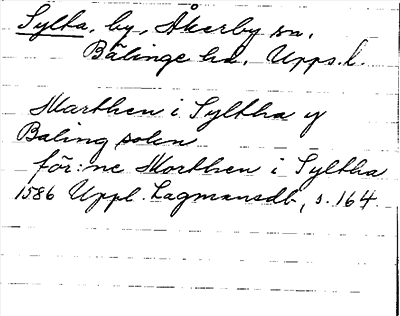 Sylta, by, Åkerby sn,
Bälinge hd, Upps. l.
Marthen i Syltha y
Baling sokn
för:ne Morthen i Syltha
1586 Uppl. Lagmansdb, s. 164